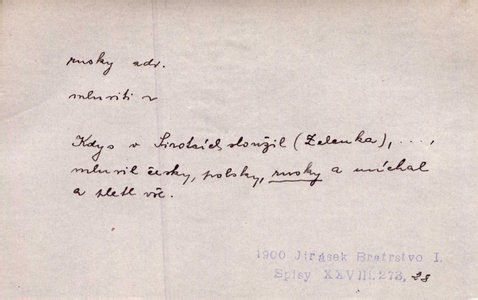 rusky adv.
mluviti r
Kdys v Sirotcích sloužil (Zelenka), ...,
mluvil česky, polsky, rusky a míchal
a pletl vše.
1900 Jirásek Bratrstvo I.
Spisy XXVIII.273, 28